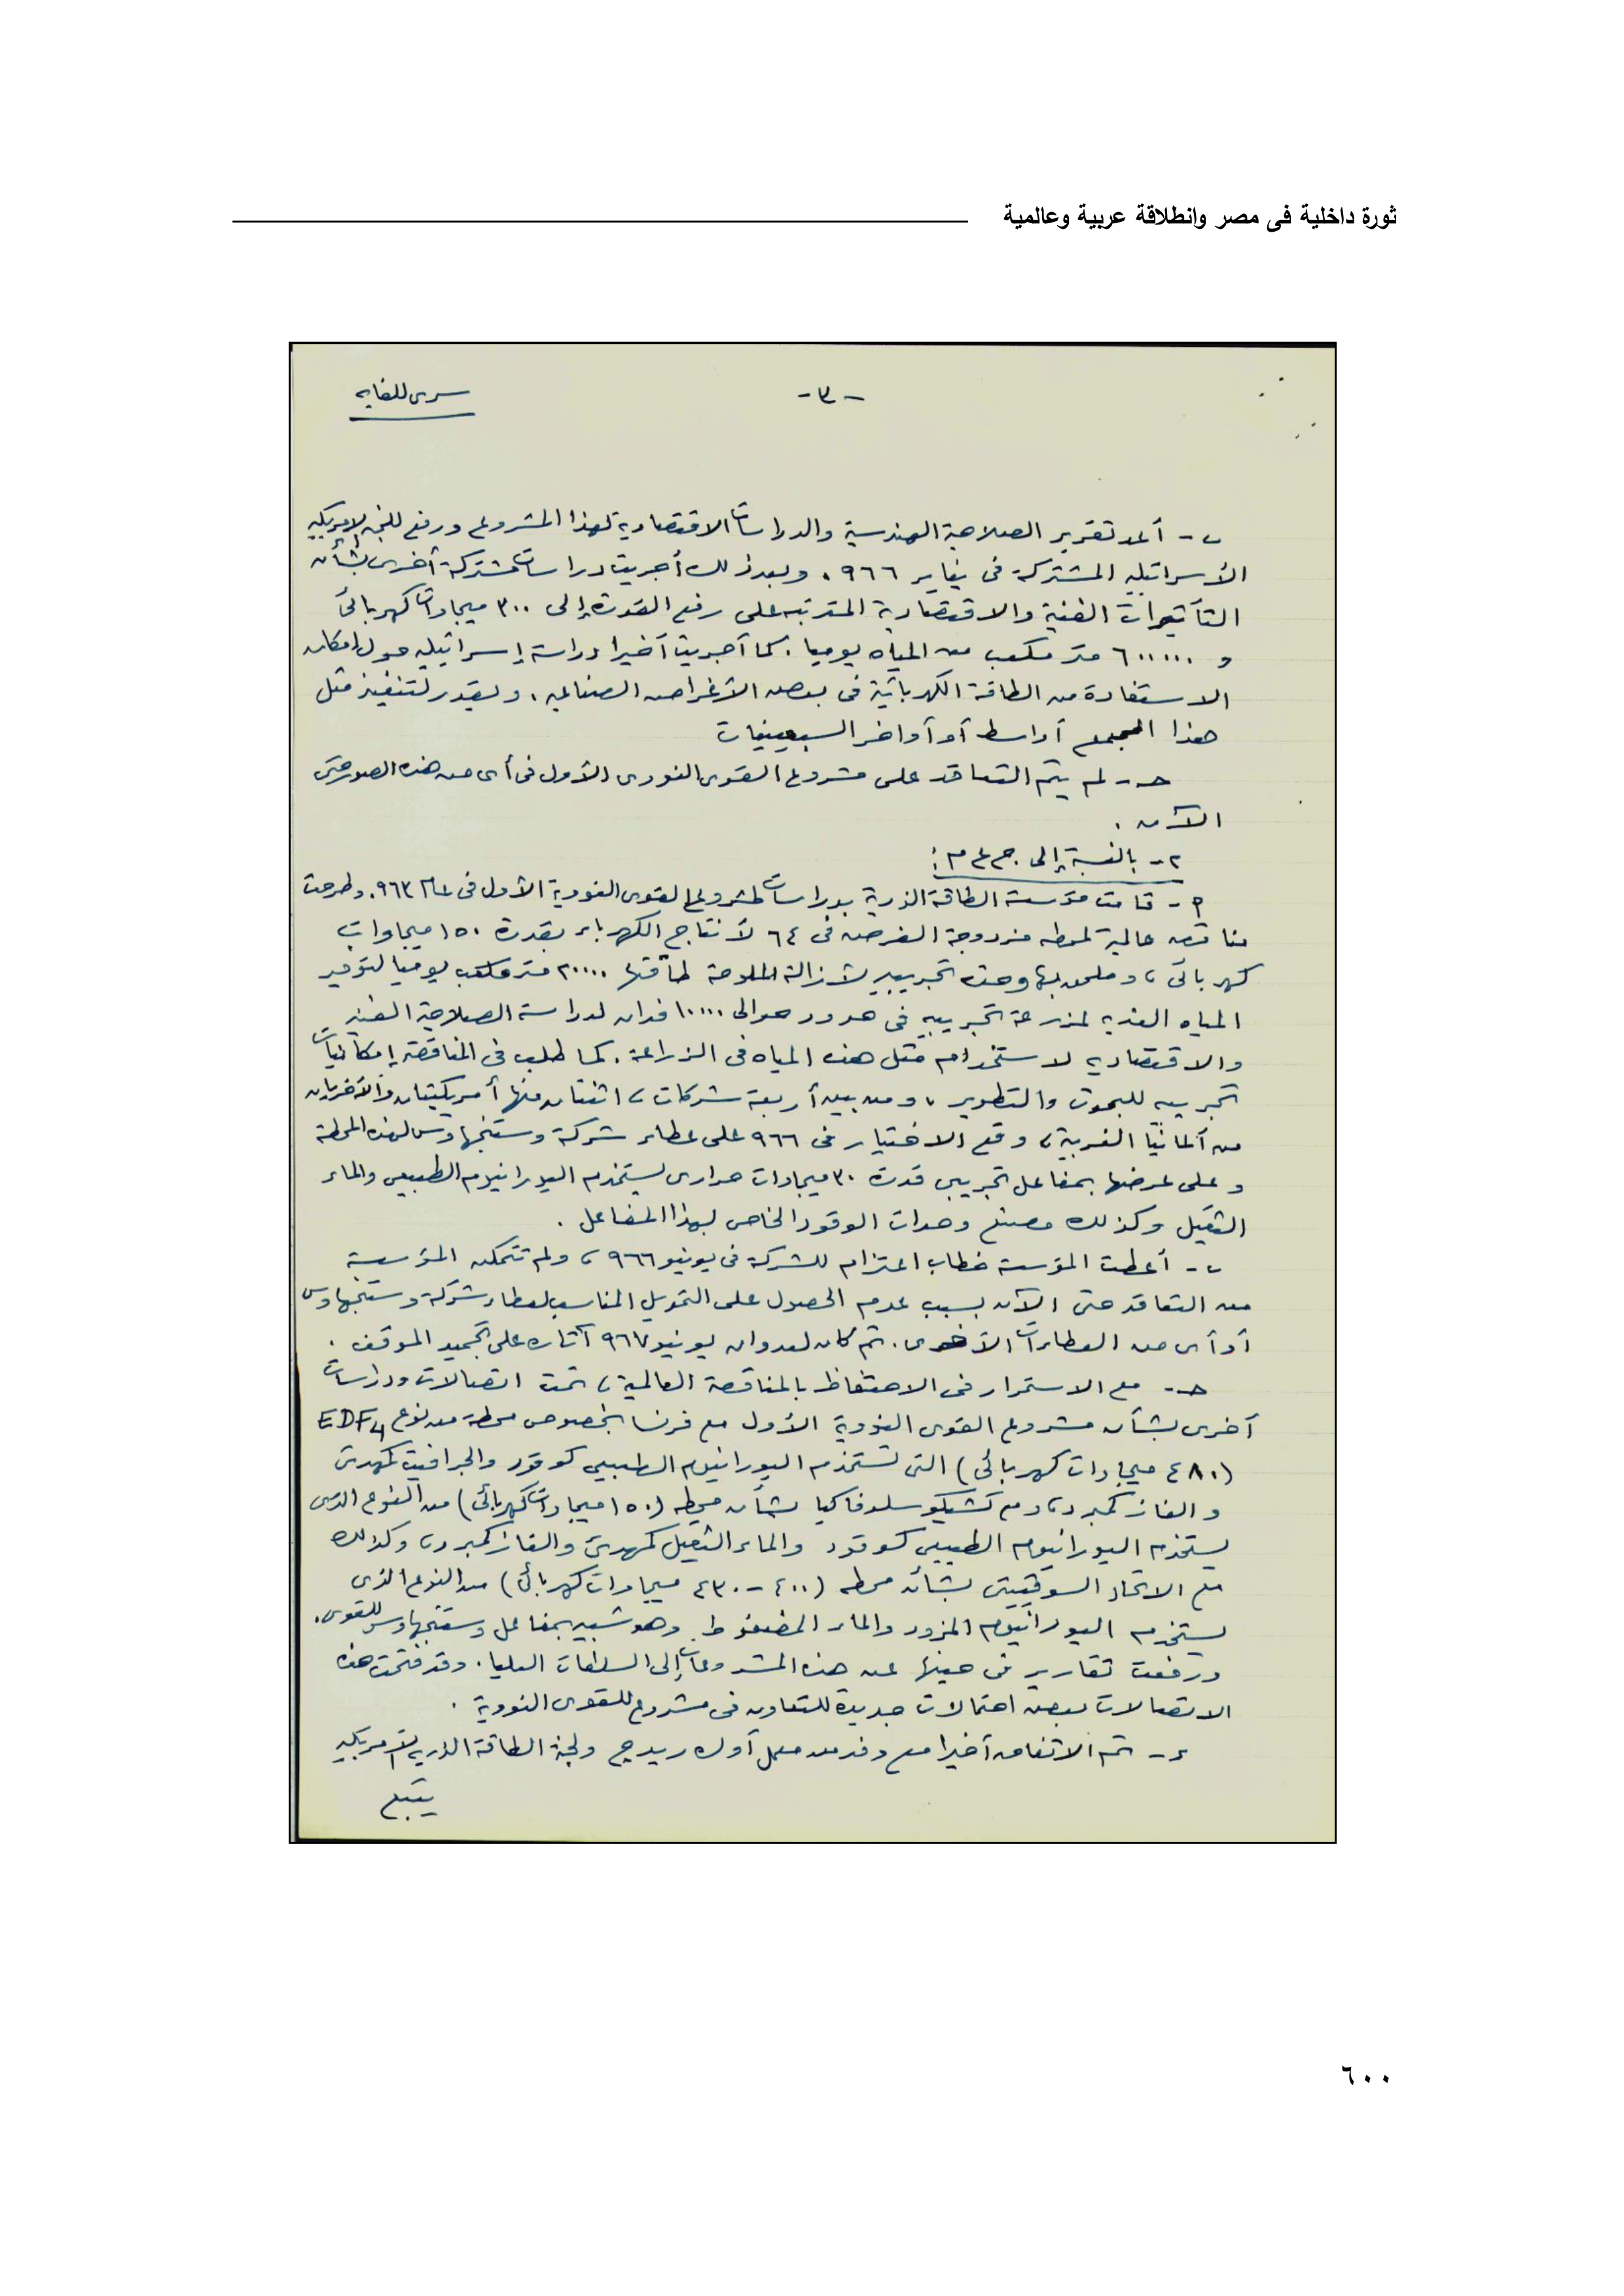 ثورة داخلية فى مصر وانطلاقة عربية وعالمية
سرى للغايه
-٣-
ب - أعد تقرير الصلاحية الهندسية والدراسات الاقتصادية لهذا المشروع ورفع للجنه الامريكيه
الأسرائيليه المشتركة فى يناير ٩٦٦ . وبعد ذلك أجريت دراسات مشتركة أخرى بشأن
التأثيرات الفنية والاقتصادية المترتبه على رفع القدرة إلى ٣٠٠ ميجاوات كهربائى
و ٦٠٠٠٠٠ متر مكعب من المياه يوميا . كما أجريت أخيرا دراسة إسرائيليه حول إمكان
الاستفادة من الطاقة الكهربائية فى بعض الأغراض الصناعيه ، ويقدر لتنفيذ مثل
هذا المجمع أواسط أو أواخر السبعينات
حـ - لم يتم التعاقد على مشروع القوى النووى الأول فى أى من هذه الصور حتى
الآن .
٢ - بالنسبة إلى ج ع م :
أ - قامت مؤسسة الطاقة الذرية بدراسات لمشروع القوى النووية الأول فى ٩٦٣ . وطرحت
مناقصه عالمية لمحطه مزدوجة الغرض فى ٦٤ لأنتاج الكهرباء بقدرة ١٥٠ ميجاوات
كهربائى ، وملحق بها وحدة تجريبيه لأزالة الملوحة طاقتها ٢٠٠٠٠ متر مكعب يوميا لتوفير
المياه العذبه لمزرعة تجريبيه فى حدود حوالى ١٠٠٠٠ فدان لدراسة الصلاحية الفنيه
والاقتصاديه لاستخدام مثل هذه المياه فى الزراعة . كما طلب فى المناقصة إمكانيات
تجريبيه للبحوث والتطوير ، ومن بين أربعة شركات ، اثنتان منها أمريكيتان والأخريان
من ألمانيا الغربية ، وقع الاختيار فى ٩٦٦ على عطاء شركة وستنجهاوس لهذه المحطة
وعلى عرضها بمفاعل تجريبى قدرة ٣٠ ميجاوات حرارى يستخدم اليورانيوم الطبيعى والماء
الثقيل وكذلك مصنع وحدات الوقود الخاص بهذا المفاعل .
ب - أعطت المؤسسة خطاب اعتزام للشركة فى يونيو ٩٦٦ ، ولم تتمكن المؤسسة
من التعاقد حتى الآن بسبب عدم الحصول على التمويل المناسب لعطاء شركة وستنجهاوس
أو أى من العطاءات الأخرى . ثم كان لعدوان يونيو ٩٦٧ آثاره على تجميد الموقف .
حـ - مع الاستمرار فى الاحتفاظ بالمناقصة العالمية ، تمت اتصالات ودراسات
أخرى بشأن مشروع القوى النووية الأول مع فرنسا بخصوص محطة من نوع EDF4
(٤٨٠ ميجاوات كهربائى) التى تستخدم اليورانيوم الطبيعى كوقود والجرافيت كمهدئ
والغاز كمبرد ، ومع تشيكوسلوفاكيا بشأن محطه (١٥٠ ميجاوات كهربائى) من النوع الذى
يستخدم اليورانيوم الطبيعى كوقود والماء الثقيل كمهدئ والغاز كمبرد ، وكذلك
مع الاتحاد السوفيتى بشأن محطه (٤٠٠ - ٤٣٠ ميجاوات كهربائى) من النوع الذى
يستخدم اليورانيوم المزود والماء المضغوط وهو شبيه بمفاعل وستنجهاوس للقوى .
ورفعت تقارير فى حينها عن هذه المشروعات إلى السلطات العليا . وقد فتحت هذه
الاتصالات بعض احتمالات جديدة للتعاون فى مشروع للقوى النووية .
د - تم الاتفاق أخيرا مع وفد من معمل أوك ريدج ولجنة الطاقة الذريه الأمريكيه
يتبع
٦٠٠